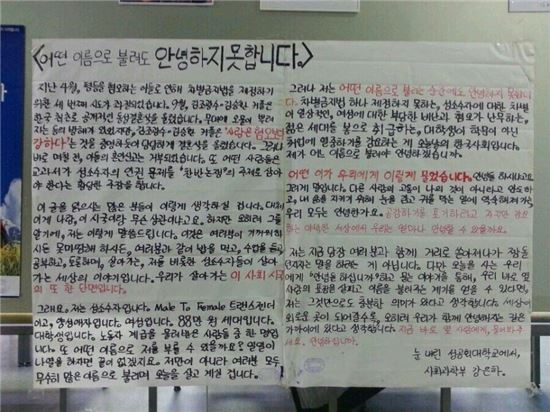 <어떤 이름으로 불려도 안녕하지 못합니다.>
지난 4월, 평등을 혐오하는 이들로 인해 차별금지법을 제정하기
위한 세 번째 시도가 좌절되었습니다. 9월, 김조광수·김승환 커플은
한국 최초로 공개적인 동성결혼식을 올렸습니다. 무대에 오물이 뿌려
지는 등의 방해가 있었지만, 김조광수·김승환 커플은 "사랑은 혐오보다
강하다"는 것을 증명하듯이 당당하게 결혼식을 올렸습니다. 그러나
바로 며칠 전, 이들의 혼인신고는 거부되었습니다. 또 어떤 사람들은
교과서가 성소수자의 인권 문제를 "찬반논쟁"의 주제로 삼아
야 한다는 황당한 주장을 합니다.
이 글을 읽으시는 많은 분들이 이렇게 생각하실 겁니다. 대체
이게 나랑, 이 시국이랑 무슨 상관이냐고요. 하지만 오히려 그렇
기에, 저는 이렇게 말씀드립니다. 이것은 여러분이 가까이하
시든 못마땅해 하셔도, 여러분과 같이 밥을 먹고, 수업을 듣고
공부하고, 토론하며, 살아가는, 저를 비롯한 성소수자들이 살아
가는 세상의 이야기입니다. 우리가 살아가는 이 사회, 시국
의 또 한 단면입니다.
그래요. 저는 성소수자입니다. Male To Female 트랜스젠더
이고, 양성애자입니다. 여성입니다. 88만 원 세대입니다.
대학생입니다. 노동자 계급을 물려받은 사람들 중 한 명입니
다. 또 어떤 이름으로 저를 부를 수 있을까요? 일일이
나열을 하자면 끝이 없겠지요. 저만이 아니라 여러분 모두
무수히 많은 이름으로 불리며 오늘을 살고 계실 겁니다.
그러나 저는 어떤 이름으로 불리는 순간에도 안녕하지 못합니
다. 차별금지법 하나 제정하지 못하는, 성소수자에 대한 차별
이 일상적인, 여성에 대한 부당한 비난과 혐오가 난무하는,
젊은 세대를 봉으로 취급하는, 대학생이 학문이 아닌
취업에 열중하기를 강요하는 게 오늘날의 한국사회입니다.
제가 어떤 이름으로 불려야 안녕하겠습니까.
어떤 이가 우리에게 이렇게 물었습니다. 안녕들 하시냐고요.
그러게 말입니다. 다른 사람의 고통이 나의 것이 아니라고 안도하
고, 내 숨을 지키기 위해 눈을 감고 귀를 막는 일에 익숙해져가는
우리 모두는 안녕한가요. 공감하기를 포기하라고 저지르 강요
하는 이러한 세상에서 우리는 얼마나 안녕할 수 있을까요.
저는 지금 당장 여러분과 함께 거리로 쏟아져나가 짱돌을
던지자는 말을 하려는 게 아닙니다. 다만 오늘을 사는 우리에
게 "안녕들 하십니까?"하고 묻는 이야기를 통해, 우리 나로 옆
사람의 표정을 살피고 이름을 불러주는 계기를 얻을 수 있다면,
저는 그것만으로도 충분한 의미가 있다고 생각합니다. 세상이
외로운 곳이 되어갈수록, 오히려 우리가 함께 안녕하자는 길은
가까이에 있다고 생각합니다. 지금 바로 옆 사람에게, 물어봐주
세요. 안녕하십니까.
눈 내린 성공회대학교에서,
사회과학부 강은하.